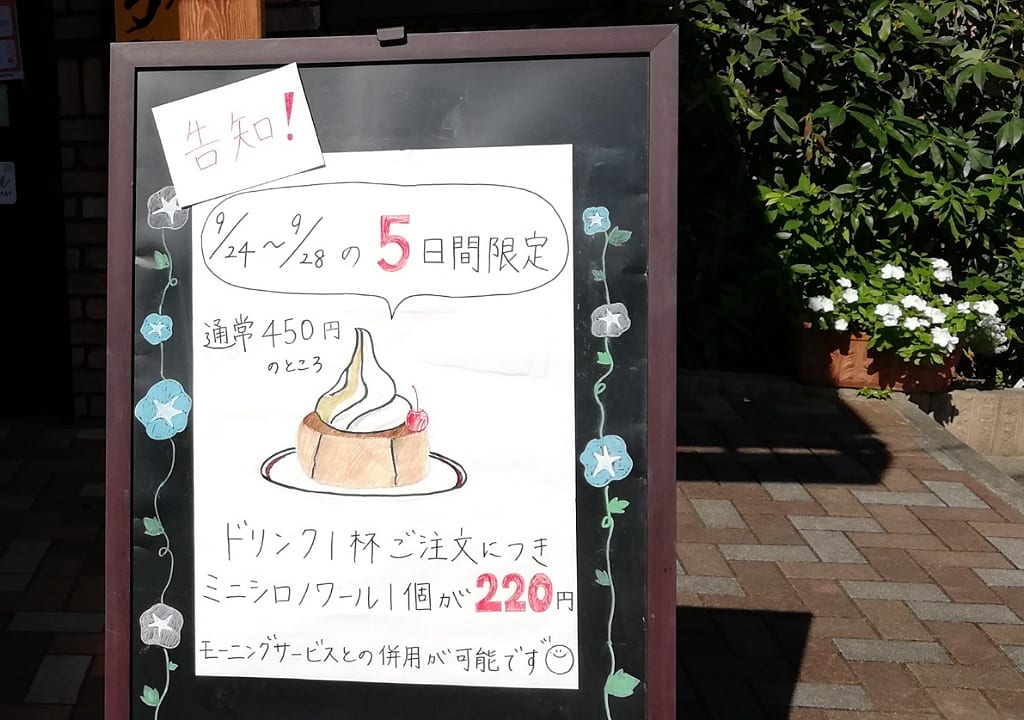 告知!
9/24～9/28の5日間限定
通常450円
のところ
ドリンク1杯ご注文につき
ミニシロノワール1個が220円
モーニングサービスとの併用が可能です